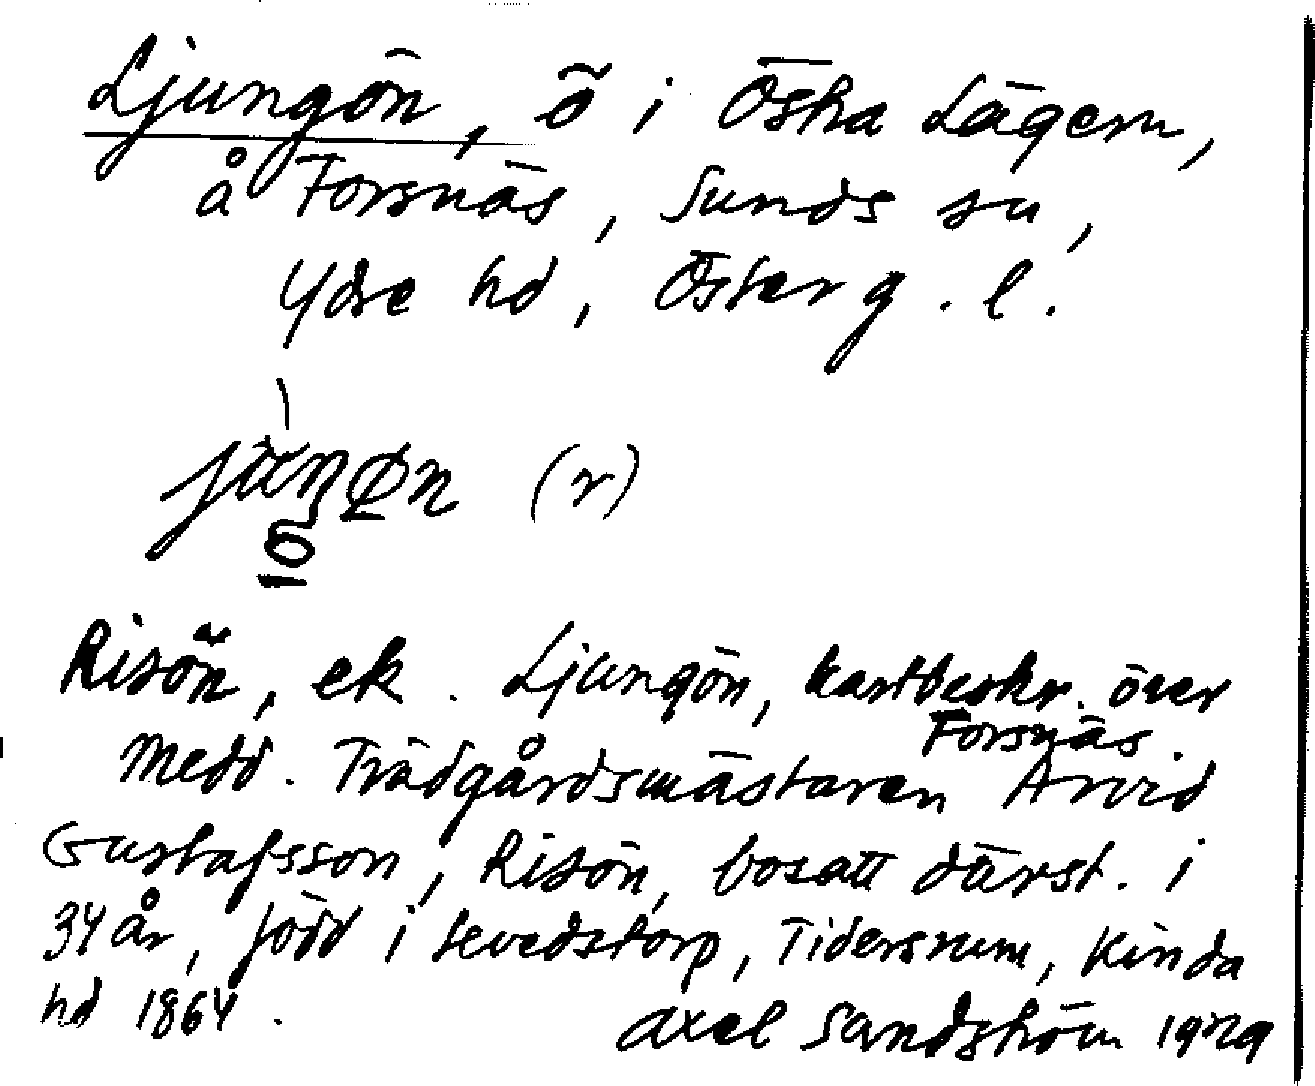 Ljungön, ö i Östra Lägern,
å Forsnäs, Sunds sn,
Ydre hd, Österg. l.
(r)
Risön, ek. Ljungön, kartbeskr. över
Forsnäs.
Medd. Trädgårdsmästaren Arvid
Gustafsson, Risön, bosatt därst. i
34 år, född i Sevedstorp, Tidersrum, Kinda
hd 1864.
Axel Sandström 1929